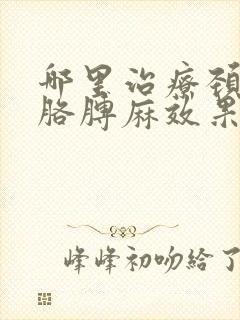 哪里治療頚
胳膊麻效果
峰峰初吻給了